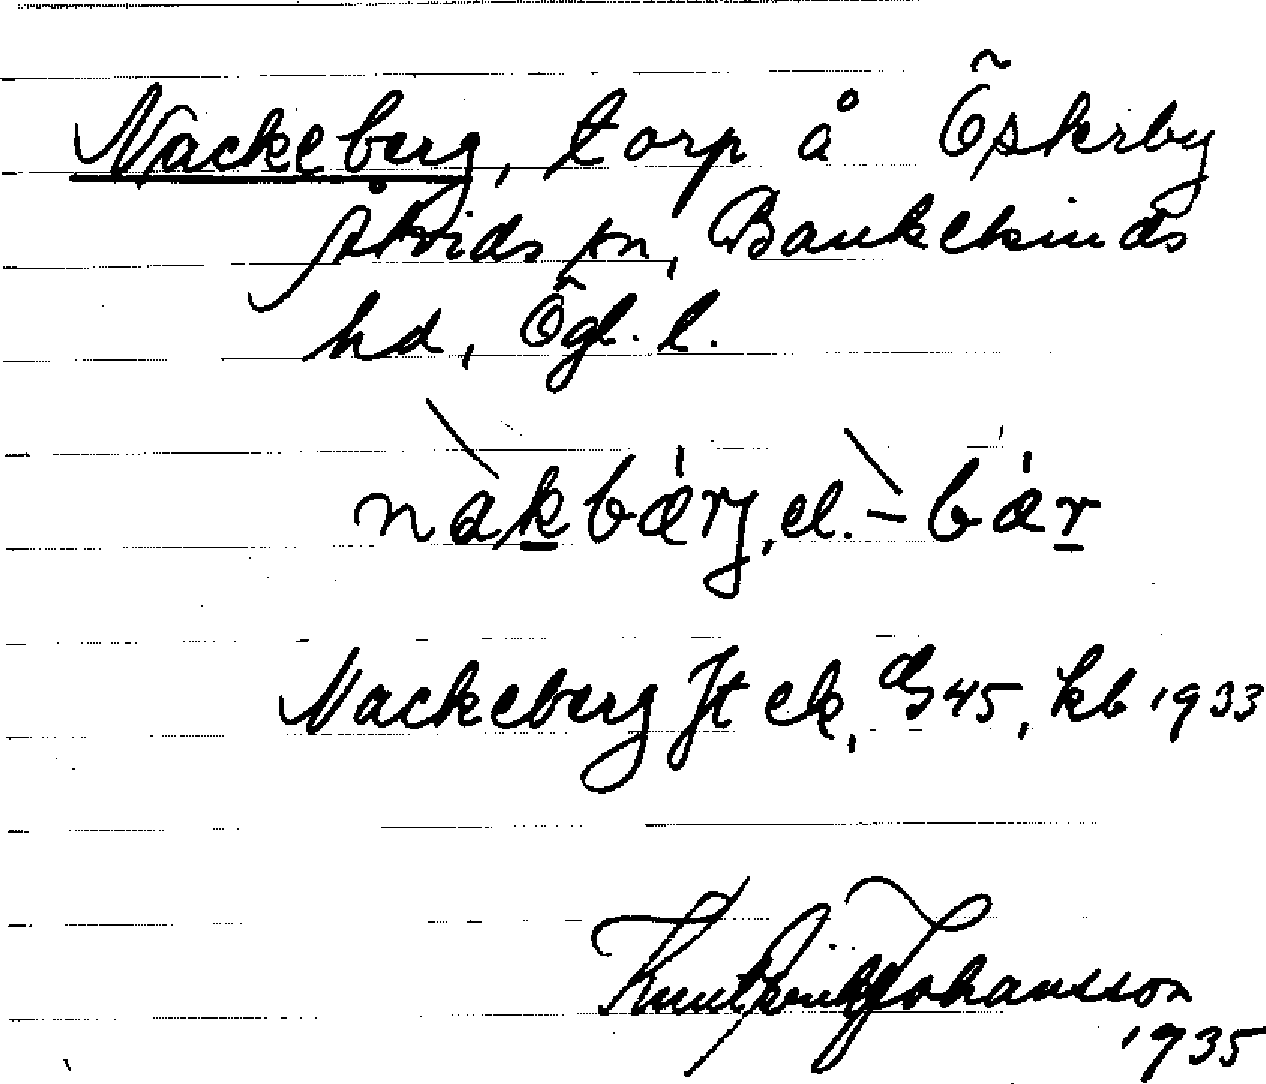 Nackeberg, torp å Öskrby
Åtvids sn, Bankekinds
hd, Ögl. l.
nàkbǽrj, el. -̀bǽr
Nackeberg Jt ek, GS 45, kb 1933
Knut Erik Johansson
1935